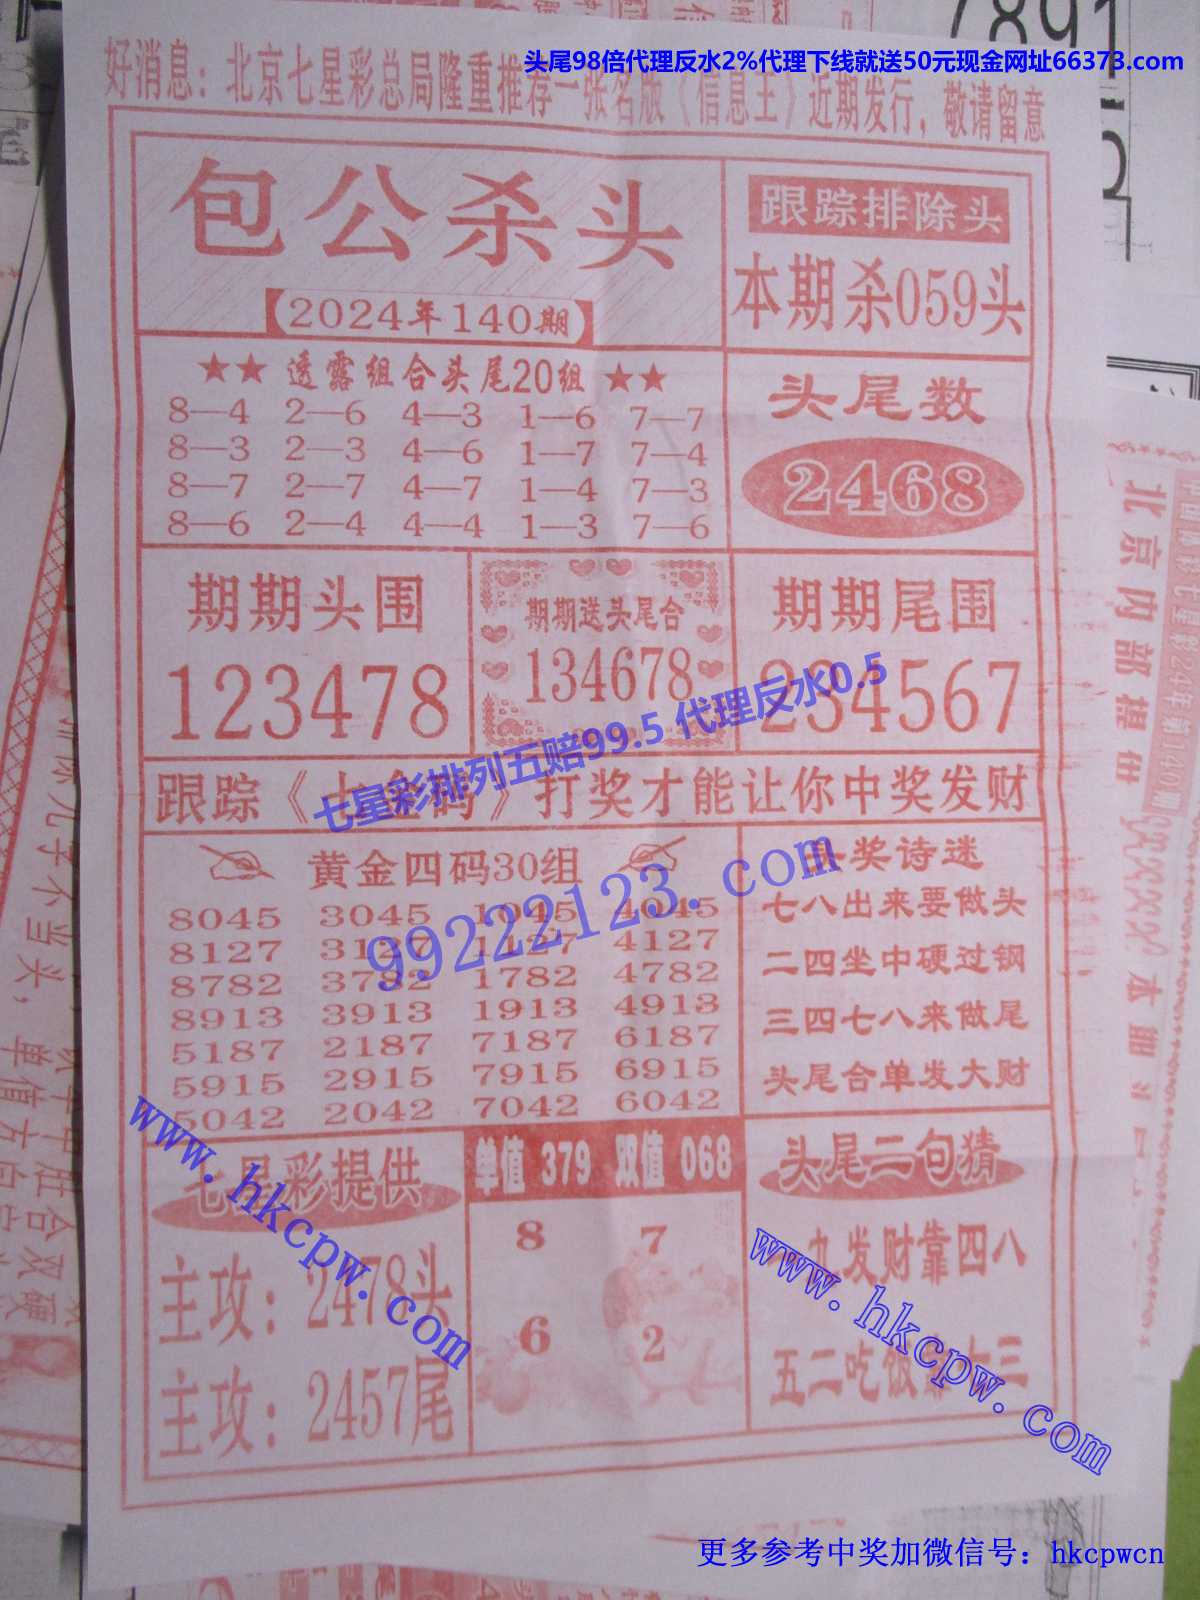 头尾98倍代理反水2%代理下线就送50元现金网址66373.com
好消息：北京七星彩总局隆重推荐一张名版《信息王》近期发行，敬请留意
包公杀头
【2024年140期】
跟踪排除头
本期杀059头
★★ 透露组合头尾20组 ★★
8—4 2—6 4—3 1—6 7—7
8—3 2—3 4—6 1—7 7—4
8—7 2—7 4—7 1—4 7—3
8—6 2—4 4—4 1—3 7—6
头尾数
2468
期期头围
123478
期期送头尾合
134678
期期尾围
234567
七星彩排列五赔99.5 代理反水0.5
跟踪《 》打奖才能让你中奖发财
黄金四码30组
8045 3045 1045 4045
8127 3127 1127 4127
8782 3782 1782 4782
8913 3913 1913 4913
5187 2187 7187 6187
5915 2915 7915 6915
5042 2042 7042 6042
99222123.com
奖诗迷
七八出来要做头
二四坐中硬过钢
三四七八来做尾
头尾合单发大财
七星彩提供
主攻：2478头
主攻：2457尾
www.hkcpw.com
单值 379 双值 068
8 7
6 2
头尾二句猜
九发财靠四八
五二吃饭 三
www.hkcpw.com
北京内部提供
更多参考中奖加微信号：hkcpwcn